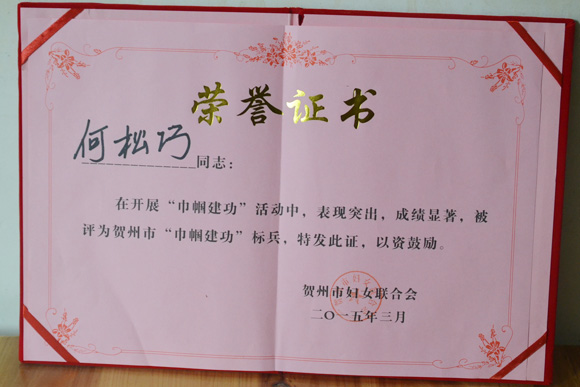 荣誉证书
何松巧同志：
在开展“巾帼建功”活动中，表现突出，成绩显著，被
评为贺州市“巾帼建功”标兵，特发此证，以资鼓励。
贺州市妇女联合会
二〇一五年三月